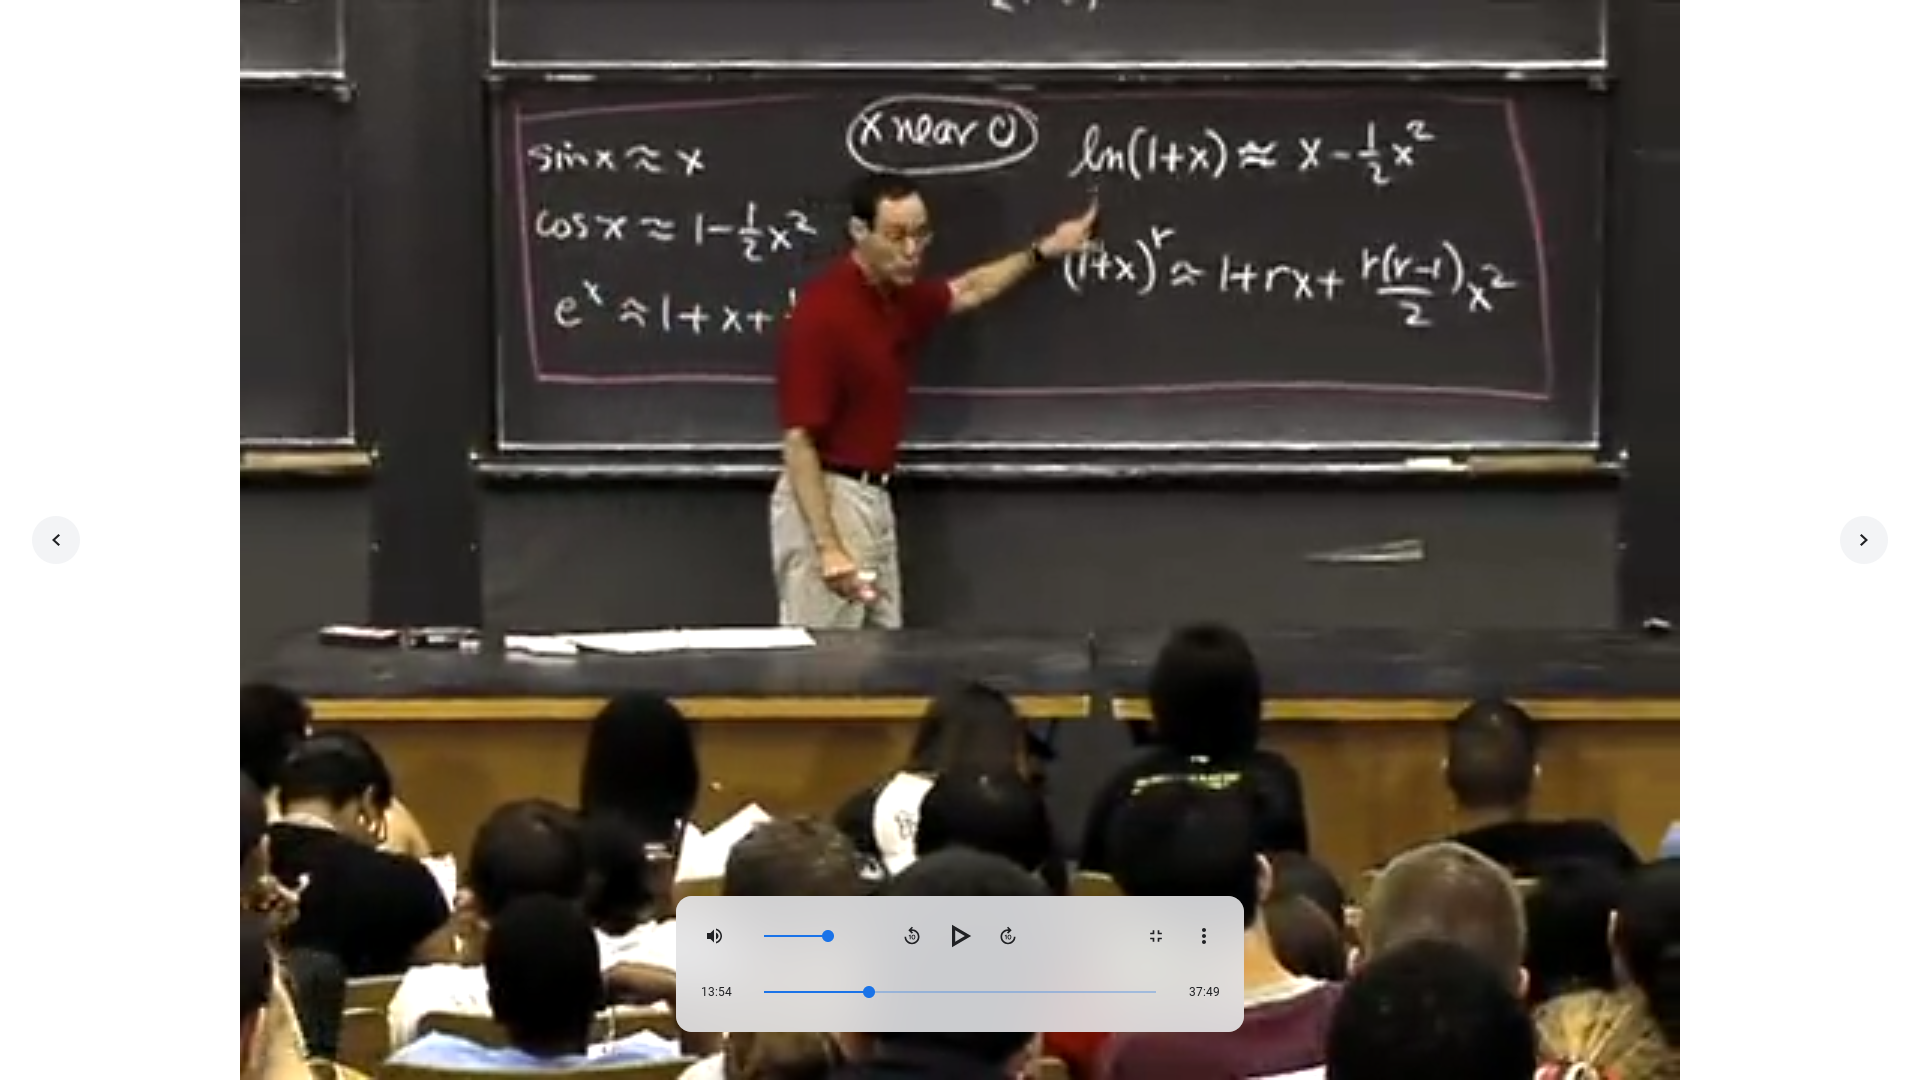 x near 0
sin x ≈ x
cos x ≈ 1 - 1/2 x²
eˣ ≈ 1 + x +
ln(1+x) ≈ x - 1/2 x²
(1+x)ʳ ≈ 1 + rx + r(r-1)/2 x²
10
10
13:54
37:49